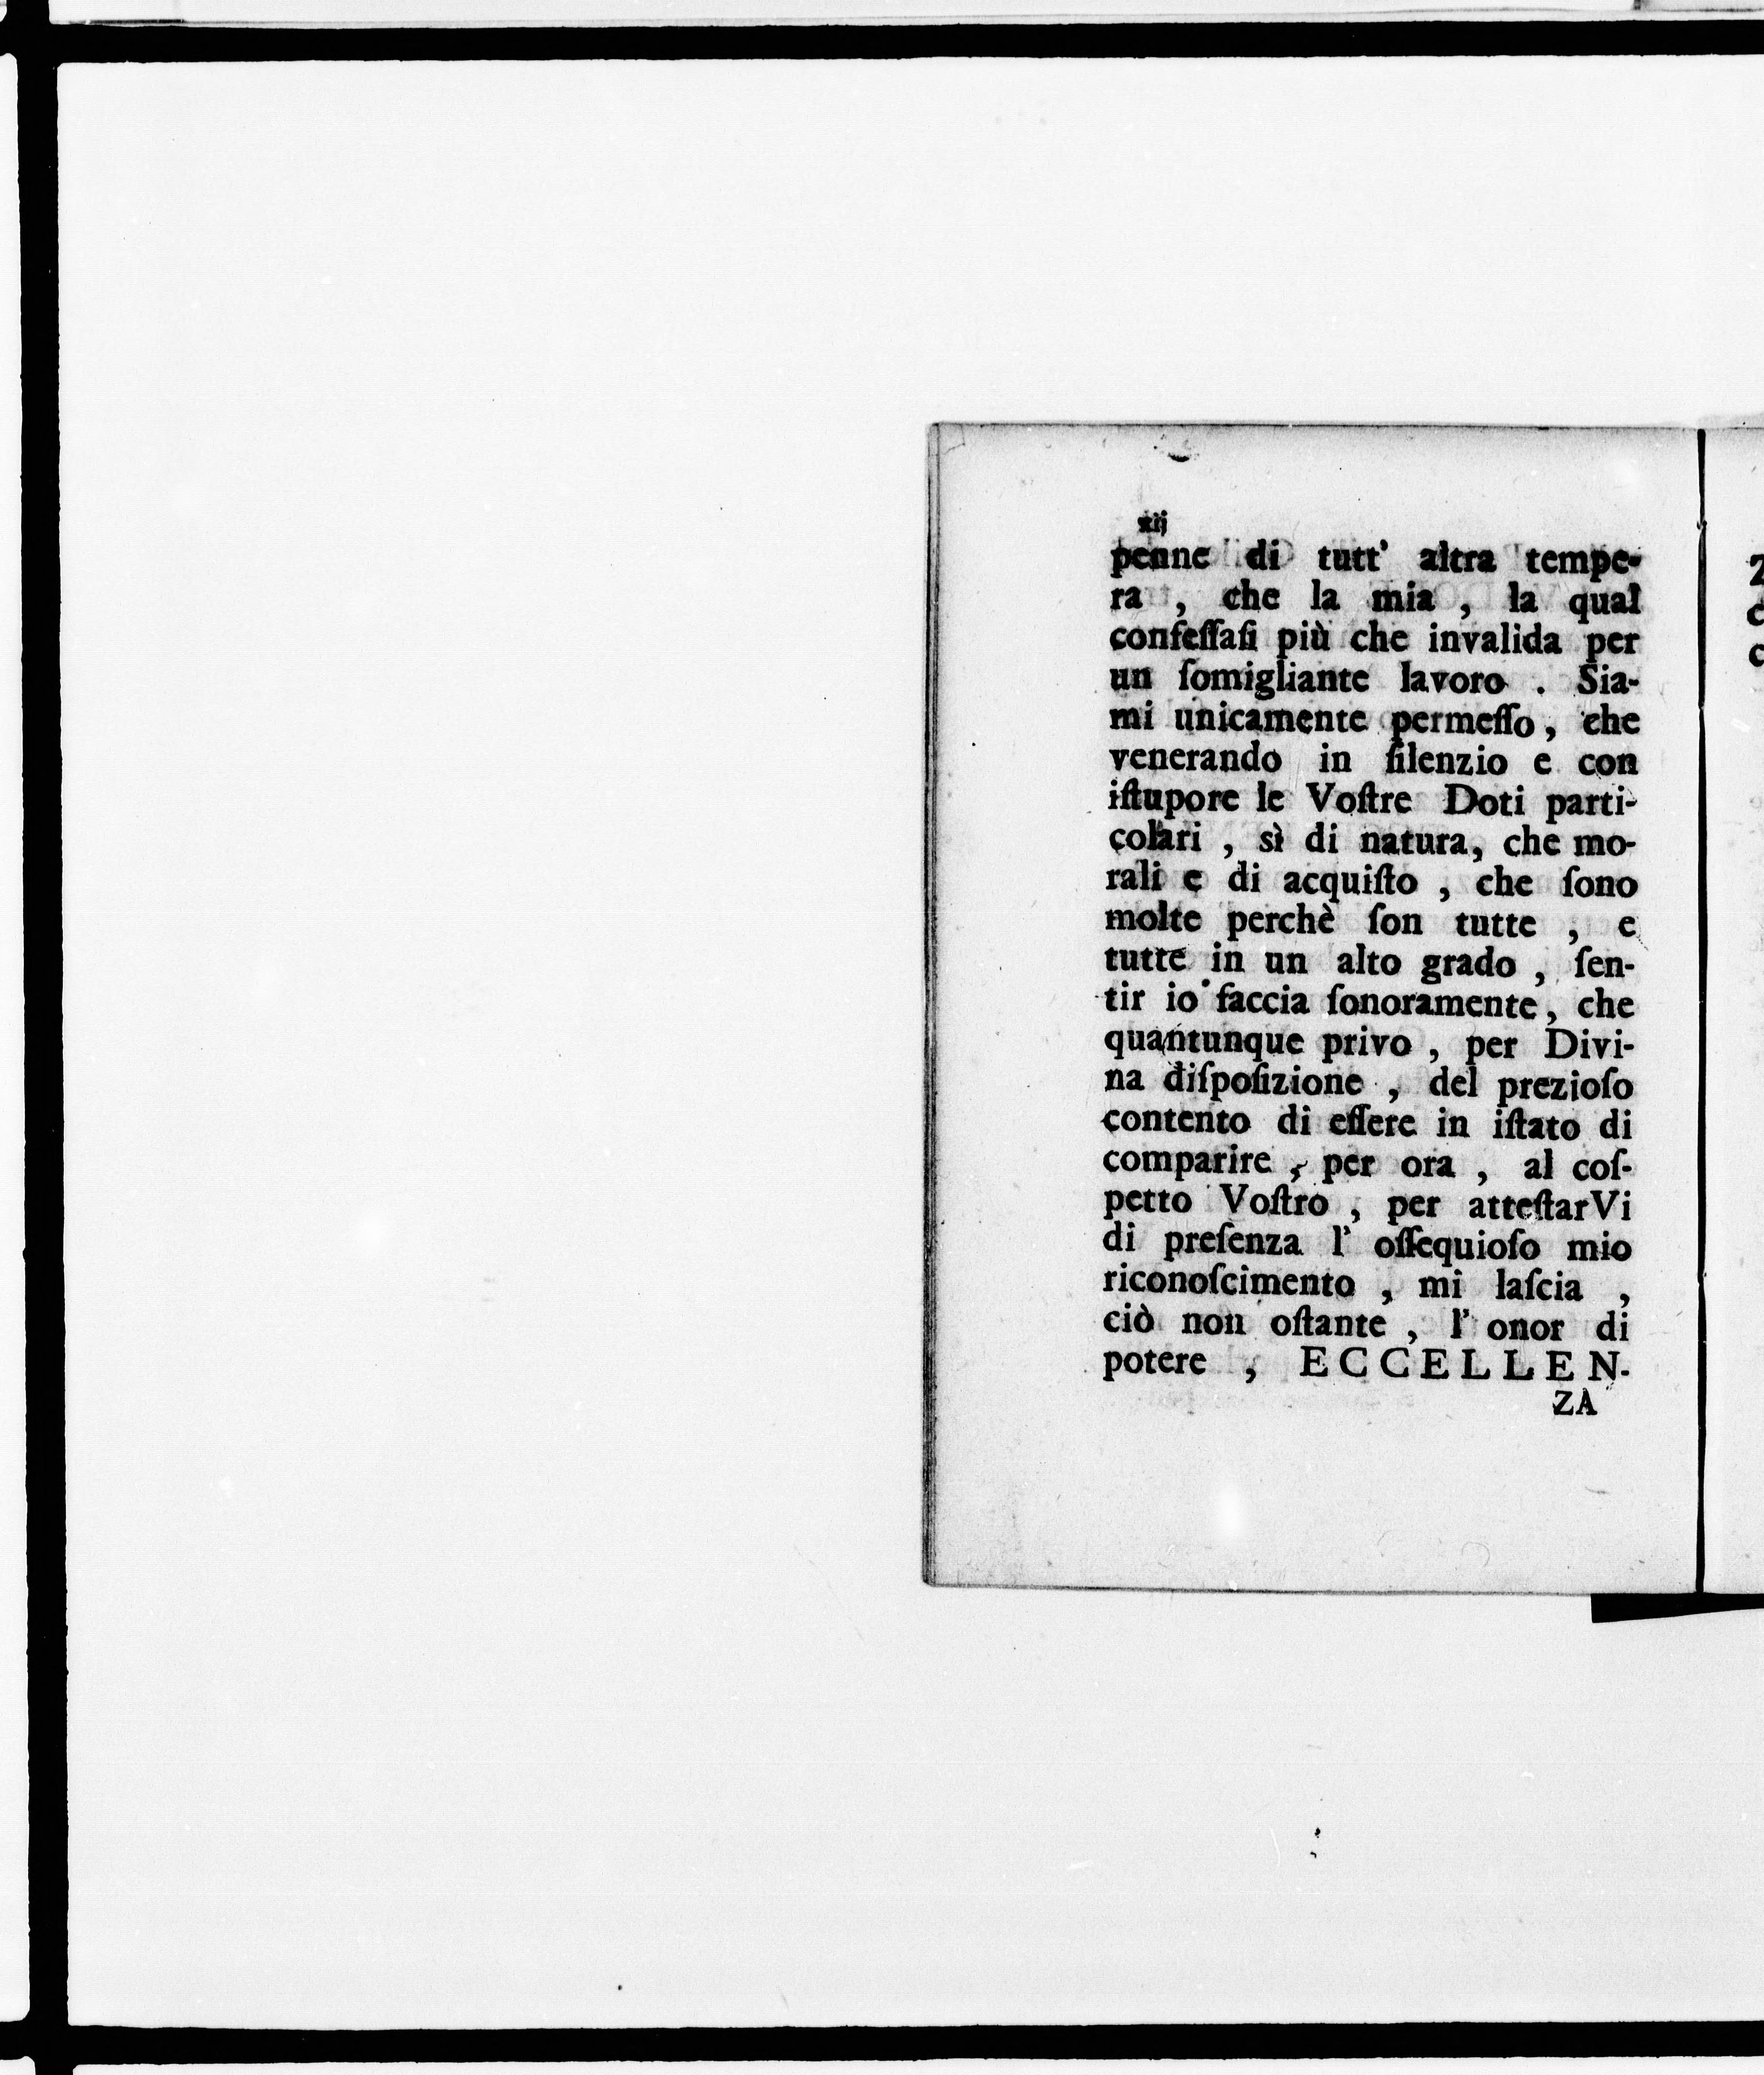 xij
penne di tutt' altra tempe-
ra , che la mia , la qual
confeſſaſi più che invalida per
un ſomigliante lavoro . Sia-
mi unicamente permeſſo , che
venerando in ſilenzio e con
iſtupore le Voſtre Doti parti-
colari , sì di natura, che mo-
rali e di acquiſto , che ſono
molte perchè ſon tutte , e
tutte in un alto grado , ſen-
tir io faccia ſonoramente , che
quantunque privo , per Divi-
na diſpoſizione , del prezioſo
contento di eſſere in iſtato di
comparire , per ora , al coſ-
petto Voſtro , per atteſtarVi
di preſenza l' oſſequioſo mio
riconoſcimento , mi laſcia ,
ciò non oſtante , l' onor di
potere , ECCELLEN-
ZA